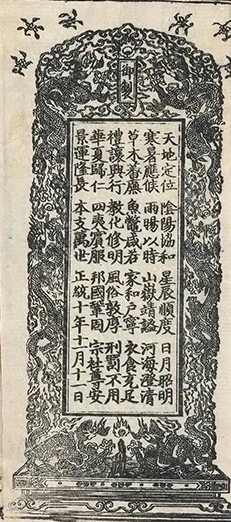 御製
天地定位 陰陽協和 星辰順度 日月昭明
寒暑應候 雨暘以時 山嶽靖謐 河海澄清
草木番廡 魚鱉咸若 家和戶寧 衣食充足
禮讓興行 教化修明 風俗敦厚 刑罰不用
華夏歸仁 四夷賓服 邦國鞏固 宗社尊安
景運隆長 本支萬世 正統十年十一月十一日